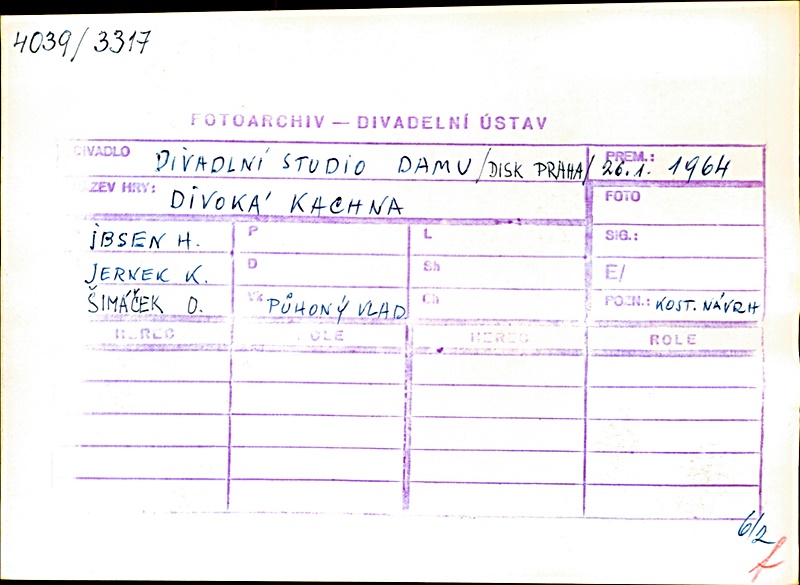 4039/3317
FOTOARCHIV — DIVADELNÍ ÚSTAV
DIVADLO DIVADLNÍ STUDIO DAMU /DISK PRAHA/ PREM.: 26.1. 1964
NÁZEV HRY: DIVOKÁ KACHNA FOTO
IBSEN H. P L SIG.:
JERNEK K. D Sh E/
ŠIMÁČEK O. Vk PŮHONÝ VLAD. Ch POZN.: KOST. NÁVRH
HEREC ROLE HEREC ROLE
6/2